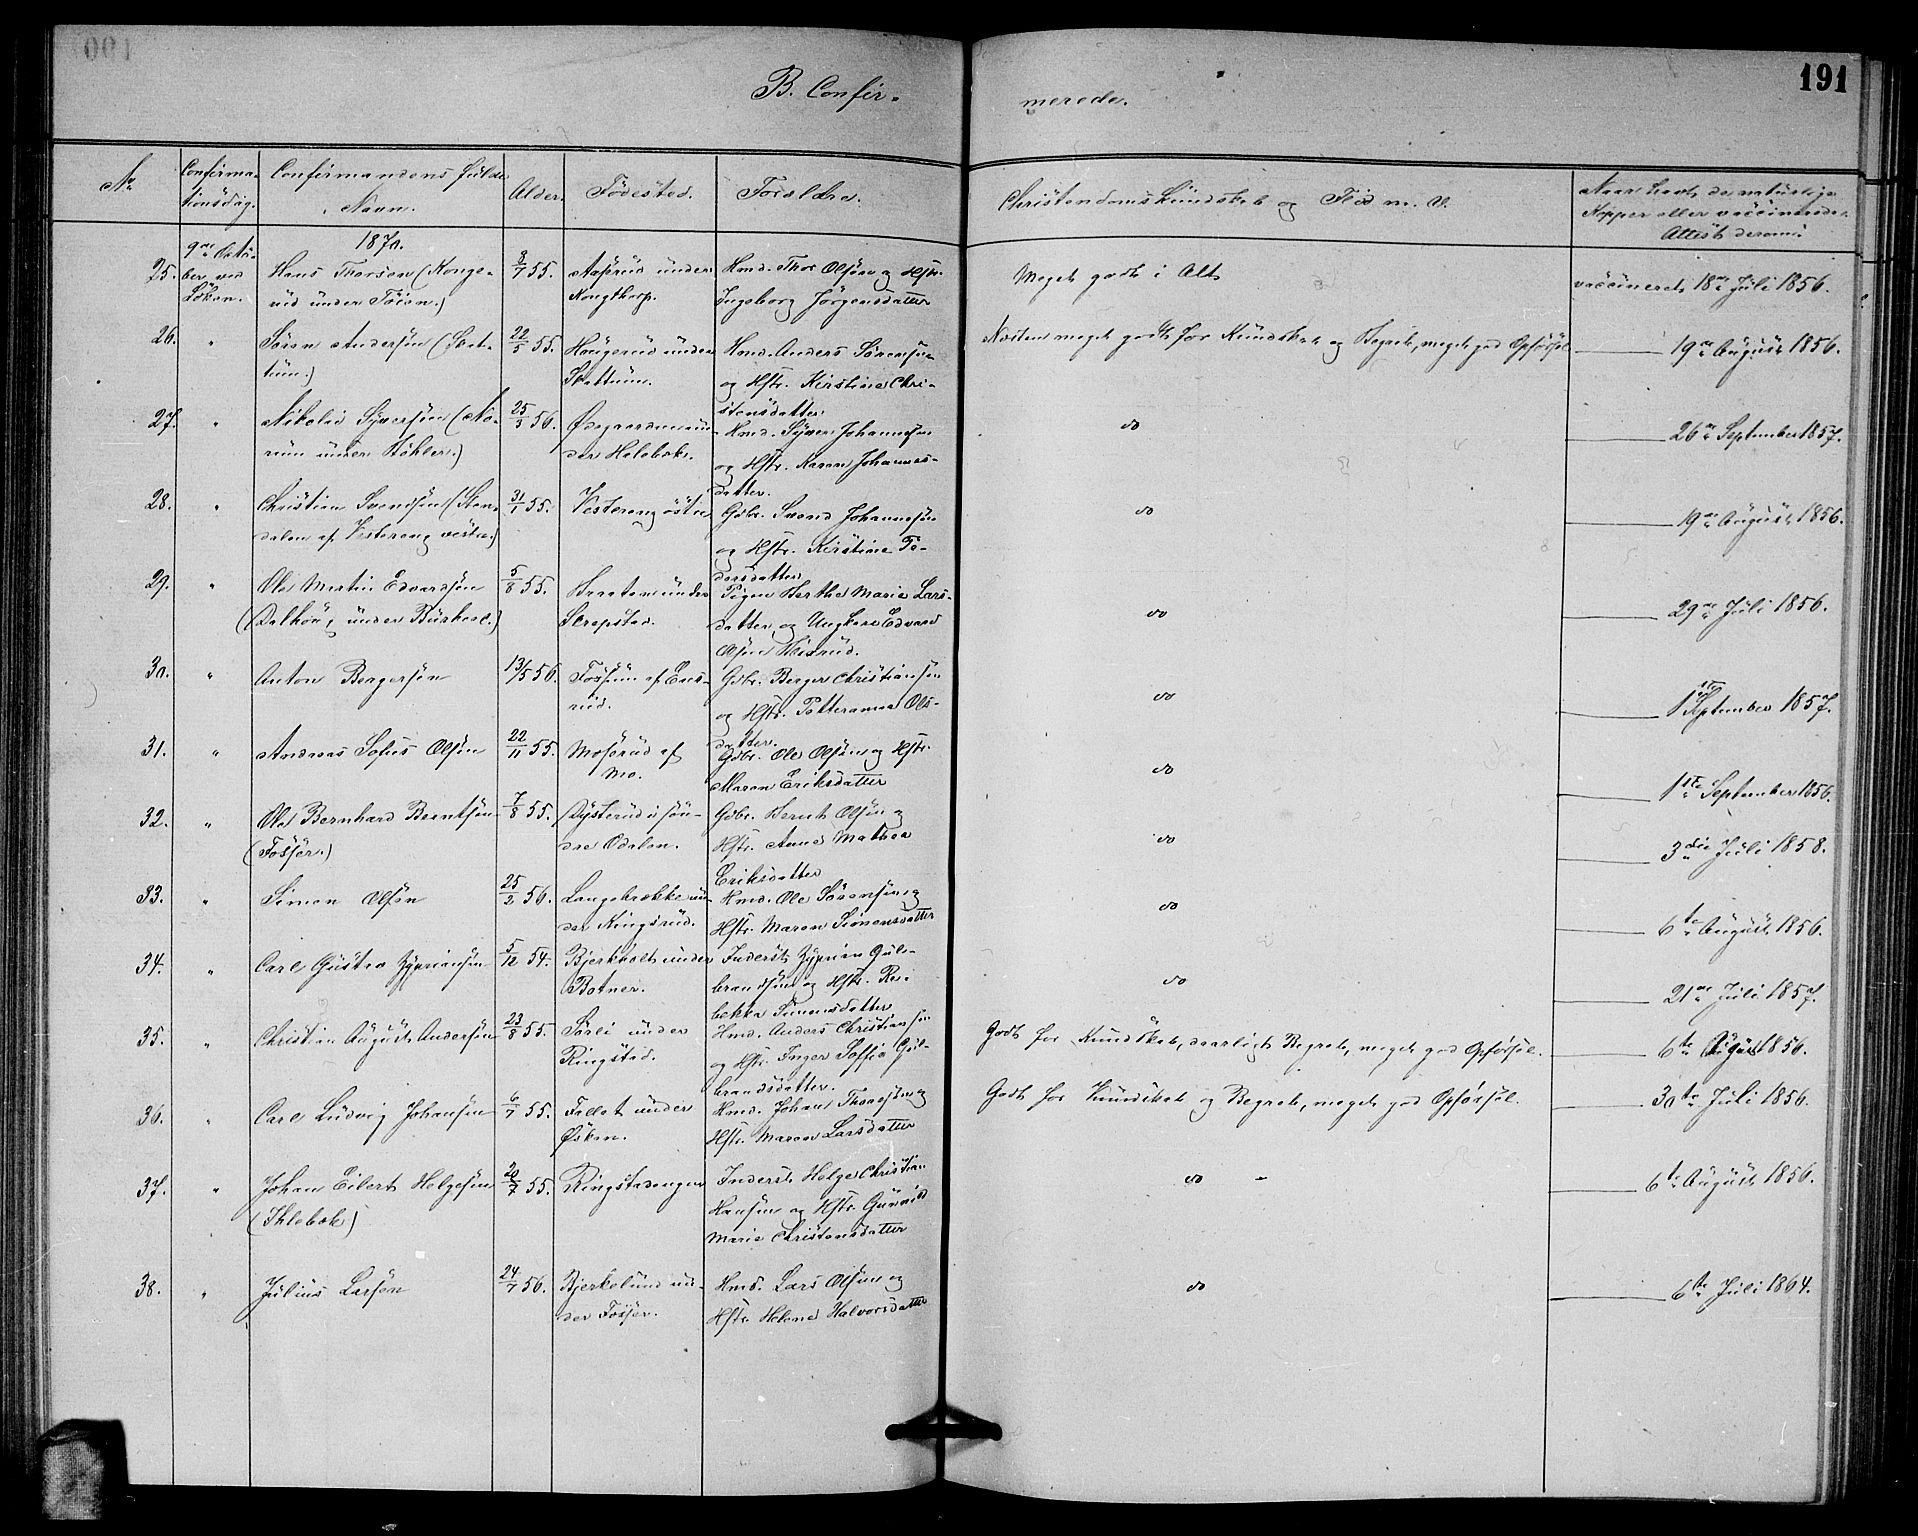 191
B. Confir-
merede.
No
Confirma-
tionsdag.
Confirmandens fulde
Navn.
Alder.
Fødested.
Forældre.
Christendomskundskab og Flid m. V.
Naar havt de naturlige
Kopper eller vaccinerede.
Attest derom.
1870.
25.
9de Octo-
ber ved
Løken.
Hans Thorsen (Konge-
rud under Tøien.)
8/7 55.
Aaprud under
Kongthorp.
Hmd. Thor Olsøn og Hstr.
Ingeborg Jørgensdatter
Meget godt i Alt
vaccineret 18de Juli 1856.
26.
"
Søren Andersøn (Skat-
tum.)
22/5 55.
Haugerud under
Skattum.
Hmd. Anders Sørensøn
og Hstr. Kirstine Chri-
stensdatter.
Næsten meget godt for Kundskab og Begreb, meget god Opførsel
19de August 1856.
27.
"
Nikolai Syversøn (No-
rum under Køhler.)
25/3 56.
Ødegaarden un-
der Holebæk.
Hmd. Syver Johannesøn
og Hstr. Karen Johannes-
datter.
do
26de September 1857.
28.
"
Christian Svendsøn (Sten-
dalen af Vestereng vestre)
31/1 55.
Vestereng østre
Gdbr. Svend Johannesøn
og Hstr. Kirstine Pe-
dersdatter
do
19de August 1856.
29.
"
Ole Martin Edvardsøn
(Dalhøug under Buskerl.)
5/8 55.
Braaten under
Strepstad.
Pigen Berthe Marie Lars-
datter og Ungkarl Edvard
Olsøn
do
29de Juli 1856.
30.
"
Anton Bergersøn
13/5 56.
Fossum af Ens-
rud.
Gdbr. Berger Christiansøn
og Hstr. Petteranna Ols-
datter.
do
1ste September 1857.
31.
"
Andreas Sofus Olsøn
22/11 55.
Moserud af
Mo.
Gdbr. Ole Olsøn og Hstr.
Maren Eriksdatter
do
1ste September 1856.
32.
"
Ole Bernhard Berntsøn
(Fosser.)
7/8 55.
Dysterud i søn-
dre Odalen.
Gdbr. Bernt Olsøn og
Hstr. Anne Mathea
Eriksdatter
do
3die Juli 1858.
33.
"
Simen Olsøn
25/2 56.
Langebrække un-
der Kingsrud.
Hmd. Ole Sørensøn og
Hstr. Maren Simensdatter
do
6te August 1856.
34.
"
Carl Gustav Zypriansøn
5/12 54.
Bjerkholt under
Botner.
Inderst Zyprian Gul-
brandsøn og Hstr. Re-
bekka Simensdatter
do
21de Juli 1857.
35.
"
Christian August Andersøn
23/8 55.
Sørli under
Ringstad.
Hmd. Anders Christiansøn
og Hstr. Inger Soffie Gul-
brandsdatter.
Godt for Kundskab, daarligt Begreb, meget god Opførsel.
6te August 1856.
36.
"
Carl Ludvig Johansøn
6/7 55.
Fallet under
Øsken.
Hmd. Johan Thoresøn og
Hstr. Maren Larsdatter
Godt for Kundskab og Begreb, meget god Opførsel.
30te Juli 1856.
37.
"
Johan Eilert Helgesøn
(Ihlebæk)
20/7 55.
Ringstadengen
Inderst Helge Christian
Hansøn og Hstr. Gunnild
Marie Christensdatter
do -
6te August 1856.
38.
"
Julius Larsøn
24/7 56.
Bjerkelund un-
der Fosser.
Hmd. Lars Olsøn og
Hstr. Helene Halvorsdatter
do
6te Juli 1864.